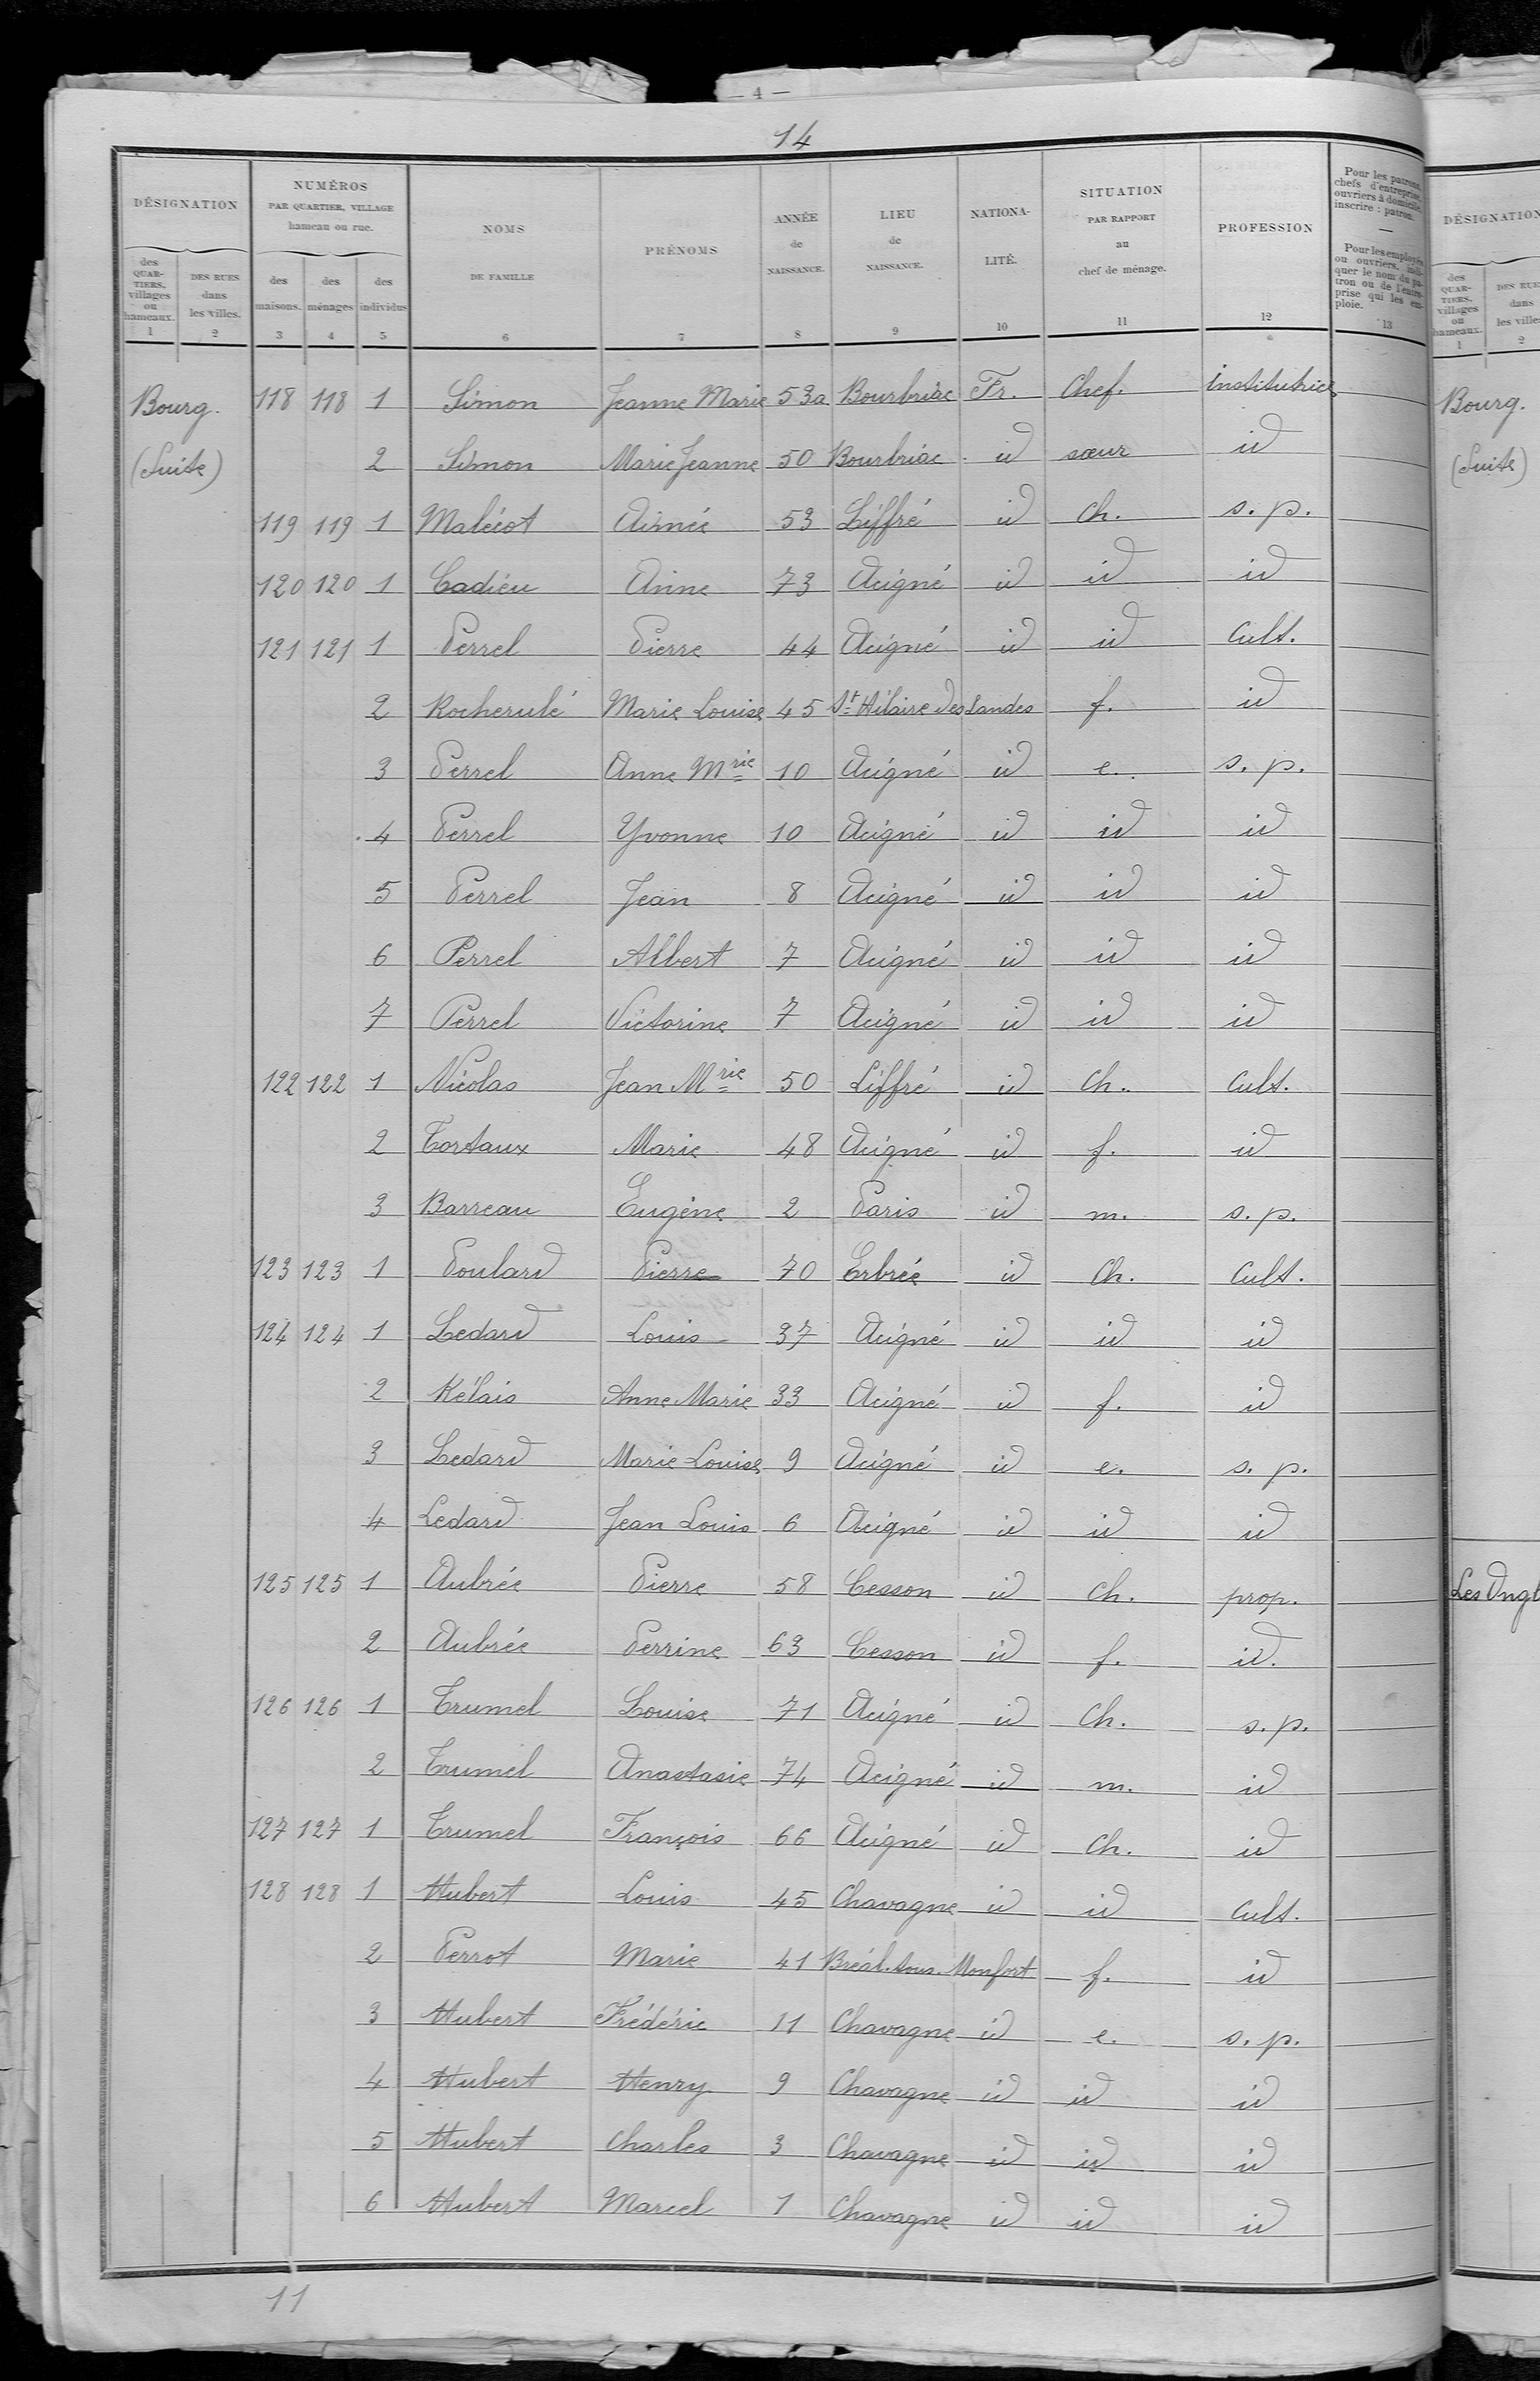 — 4 —
14
DÉSIGNATION
NUMÉROS
PAR QUARTIER, VILLAGE
hameau ou rue.
NOMS
DE FAMILLE
PRÉNOMS
ANNÉE
de
NAISSANCE.
LIEU
de
NAISSANCE.
NATIONA-
LITÉ.
SITUATION
PAR RAPPORT
au
chef de ménage.
PROFESSION
Pour les patrons,
chefs d'entreprise,
ouvriers à domicile,
inscrire : patron.
—
Pour les employés
ou ouvriers, indi-
quer le nom du pa-
tron ou de l'entre-
prise qui les em-
ploie.
des
QUAR-
TIERS,
villages
ou
hameaux.
DES RUES
dans
les villes.
des
maisons.
des
ménages
des
individus
1 2 3 4 5 6 7 8 9 10 11 12 13
Bourg. 118 118 1 Simon Jeanne Marie 53a Bourbriac Fr. Chef. institutrice
(Suite) 2 Simon Marie Jeanne 50 Bourbriac id sœur id
119 119 1 Malécot Aimée 53 Liffré id ch. s. p.
120 120 1 Cadieu Anne 73 Acigné id id id
121 121 1 Perrel Pierre 44 Acigné id id Cult.
2 Rocherulé Marie Louise 45 St Hilaire des Landes f. id
3 Perrel Anne Mrie 10 Acigné id e. s. p.
4 Perrel Yvonne 10 Acigné id id id
5 Perrel Jean 8 Acigné id id id
6 Perrel Albert 7 Acigné id id id
7 Perrel Victorine 7 Acigné id id id
122 122 1 Nicolas Jean Mrie 50 Liffré id ch. Cult.
2 Tortaux Marie 48 Acigné id f. id
3 Barreau Eugène 2 Paris id m. s. p.
123 123 1 Poulard Pierre 70 Erbrée id Ch. Cult.
124 124 1 Ledard Louis 37 Acigné id id id
2 Kélais Anne Marie 33 Acigné id f. id
3 Ledard Marie Louise 9 Acigné id e. s. p.
4 Ledard Jean Louis 6 Acigné id id id
125 125 1 Aubrée Pierre 58 Cesson id Ch. prop.
2 Aubrée Perrine 63 Cesson id f. id.
126 126 1 Trumel Louise 71 Acigné id Ch. s. p.
2 Trumel Anastasie 74 Acigné id m. id
127 127 1 Trumel François 66 Acigné id Ch. id
128 128 1 Hubert Louis 45 Chavagne id id Cult.
2 Perrot Marie 41 Bréal. sous. Monfort f. id
3 Hubert Frédéric 11 Chavagne id e. s. p.
4 Hubert Henry 9 Chavagne id id id
5 Hubert Charles 3 Chavagne id id id
6 Hubert Marcel 1 Chavagne id id id
11
DÉSIGNATION
des
QUAR-
TIERS,
villages
ou
hameaux.
1
DES RUES
dans
les villes
2
Bourg.
(Suite)
Les Ongl